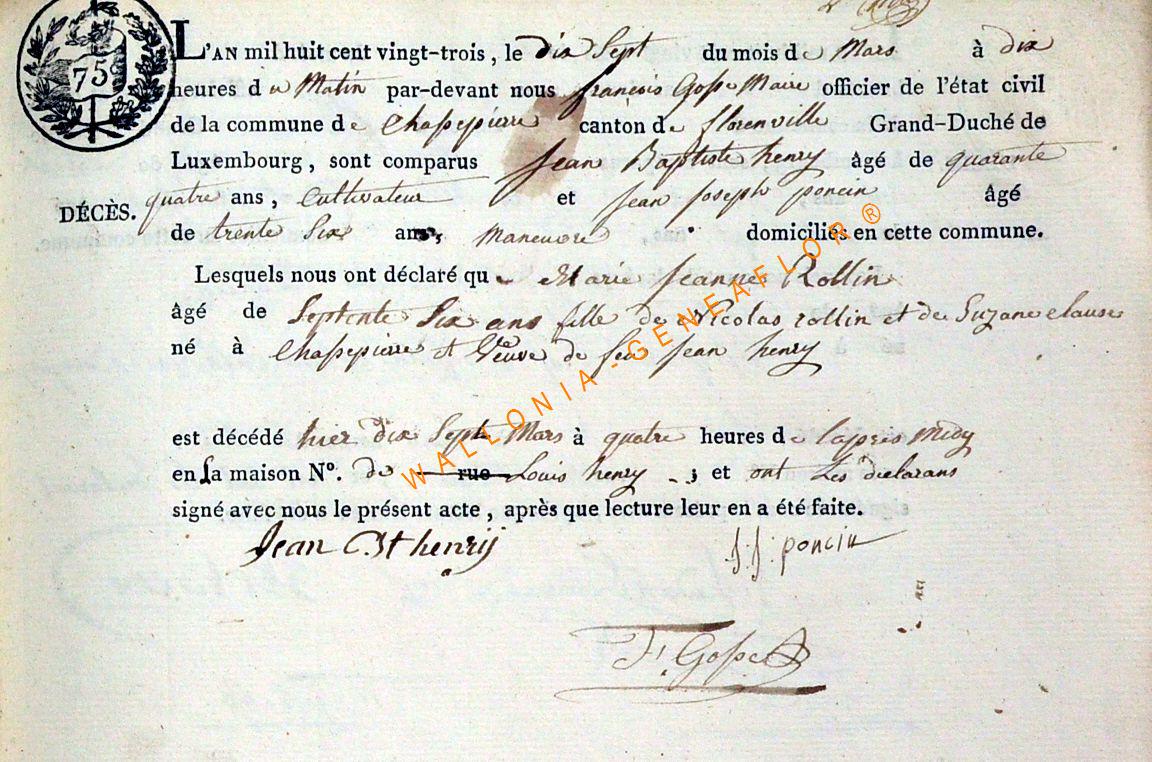 75
L'AN mil huit cent vingt-trois, le dix Sept du mois de Mars à dix
heures du Matin par-devant nous françois Gosse Maire officier de l'état civil
de la commune de Chassepierre canton de florenville Grand-Duché de
Luxembourg, sont comparus Jean Baptiste henry âgé de quarante
DÉCÈS. quatre ans, Cultivateur et Jean Joseph poncin âgé
de trente Six ans, maneuvre domiciliés en cette commune.
Lesquels nous ont déclaré que Marie Jeanne Rollin
âgé de Septente Six ans fille de Nicolas rollin et de Suzane clause
né à Chassepierre et Veuve de feu Jean henry
est décédé hier dix Sept Mars à quatre heures de lapres midy
en la maison N°. de rue Louis henry ; et ont Les déclarans
signé avec nous le présent acte, après que lecture leur en a été faite.
Jean Bt henrij
j. j. poncin
f. Gosse
WALLONIA-GENEAFLOR ®